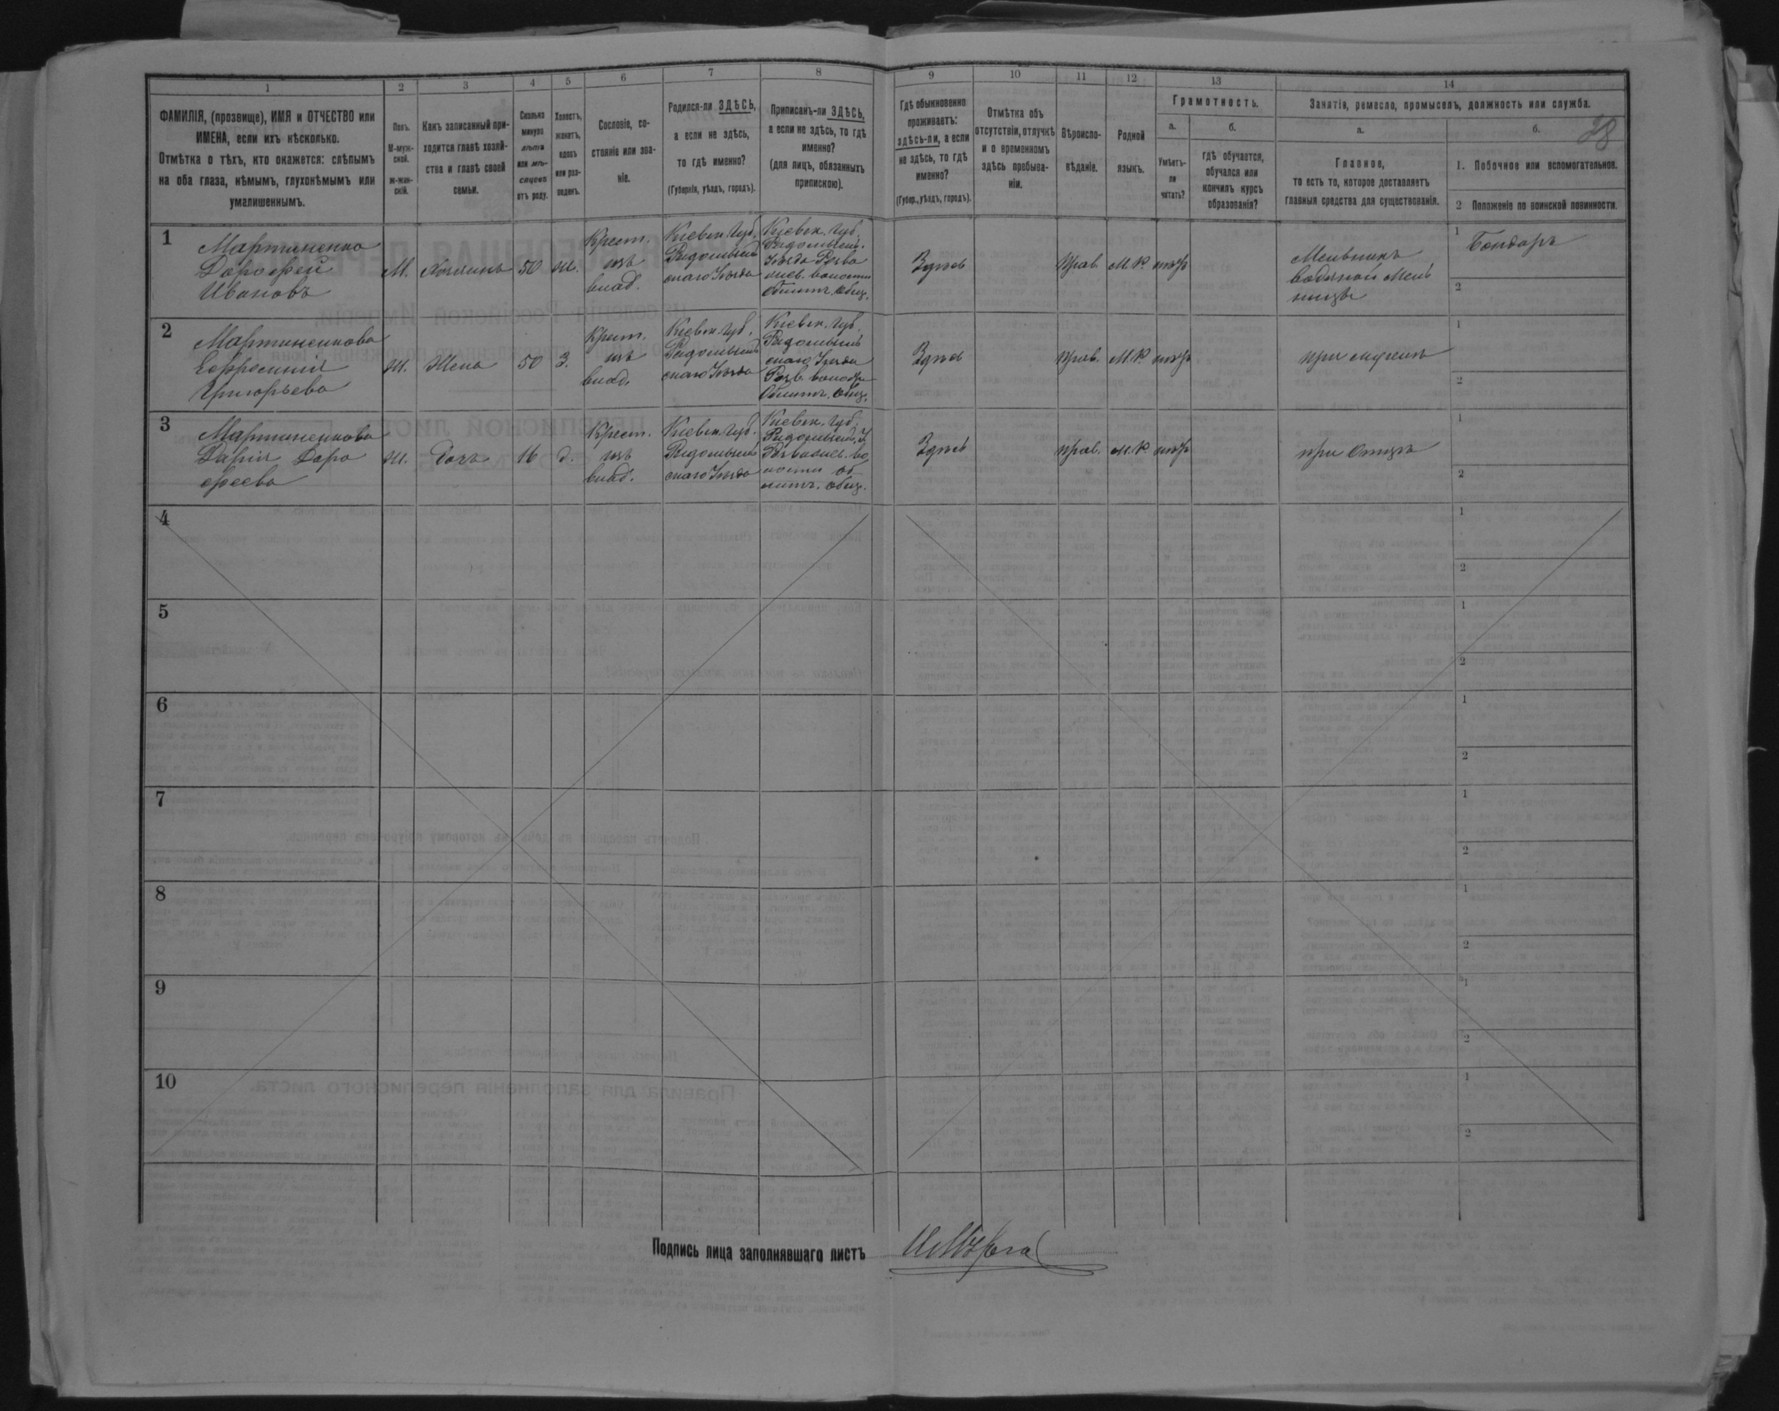 1 2 3 4 5 6 7 8 9 10 11 12 13 14
28
ФАМИЛІЯ, (прозвище), ИМЯ и ОТЧЕСТВО или
ИМЕНА, если ихъ нѣсколько.
Отмѣтка о тѣхъ, кто окажется: слѣпымъ
на оба глаза, нѣмымъ, глухонѣмымъ или
умалишеннымъ.
Полъ.
М-муж-
ской.
Ж-жен-
скій.
Какъ записанный при-
ходится главѣ хозяй-
ства и главѣ своей
семьи.
Сколько
минуло
лѣтъ
или мѣ-
сяцевъ
отъ роду.
Холостъ,
женатъ,
вдовъ
или раз-
веденъ.
Сословіе, со-
стояніе или зва-
ніе.
Родился-ли ЗДѢСЬ,
а если не здѣсь,
то гдѣ именно?
(Губернія, уѣздъ, городъ).
Приписанъ-ли ЗДѢСЬ,
а если не здѣсь, то гдѣ
именно?
(для лицъ, обязанныхъ
припискою).
Гдѣ обыкновенно
проживаетъ:
здѣсь-ли, а если
не здѣсь, то гдѣ
именно?
(Губер., уѣздъ, городъ).
Отмѣтка объ
отсутствіи, отлучкѣ
и о временномъ
здѣсь пребыва-
ніи.
Вѣроиспо-
вѣданіе.
Родной
языкъ.
Грамотность.
а.
Умѣетъ-
ли
читать?
б.
гдѣ обучается,
обучался или
кончилъ курсъ
образованія?
Занятія, ремесло, промыселъ, должность или служба.
а.
Главное,
то есть то, которое доставляетъ
главныя средства для существованія.
б.
1. Побочное или вспомогательное.
2 Положеніе по воинской повинности.
1
Мартиненко
Дарофей
Ивановъ
М.
Хозяинъ
50
ж.
Крест.
изъ
влад.
Кіевск. Губ.
Радомысль
скаго Уѣзда
Кіевск. Губ.
Радомысль.
Уѣзда
волости
общ.
Здѣсь
Прав.
М. Р.
нѣтъ
Мельникъ
водяной мель
ницы
1
Бондаръ
2
2
Мартиненкова
Ефросинія
Григорьева
ж.
Жена
50
З.
Крест.
изъ
влад.
Кіевск. Губ.
Радомысль
скаго Уѣзда
Кіевск. Губ.
Радомысль
скаго Уѣзда
общ.
Здѣсь
прав.
М. Р.
нѣтъ
при мужѣ
1
2
3
Мартиненкова
Дарія Даро
феева
ж.
Дочь
16
д.
Крест.
изъ
влад.
Кіевск. Губ.
Радомысль
скаго Уѣзда
Кіевск. Губ.
Радомысль. У.
во
лости
общ.
Здѣсь
прав.
М. Р.
нѣтъ
при отцѣ
1
2
4
1
2
5
1
2
6
1
2
7
1
2
8
1
2
9
1
2
10
1
2
Подпись лица заполнявшаго листъ